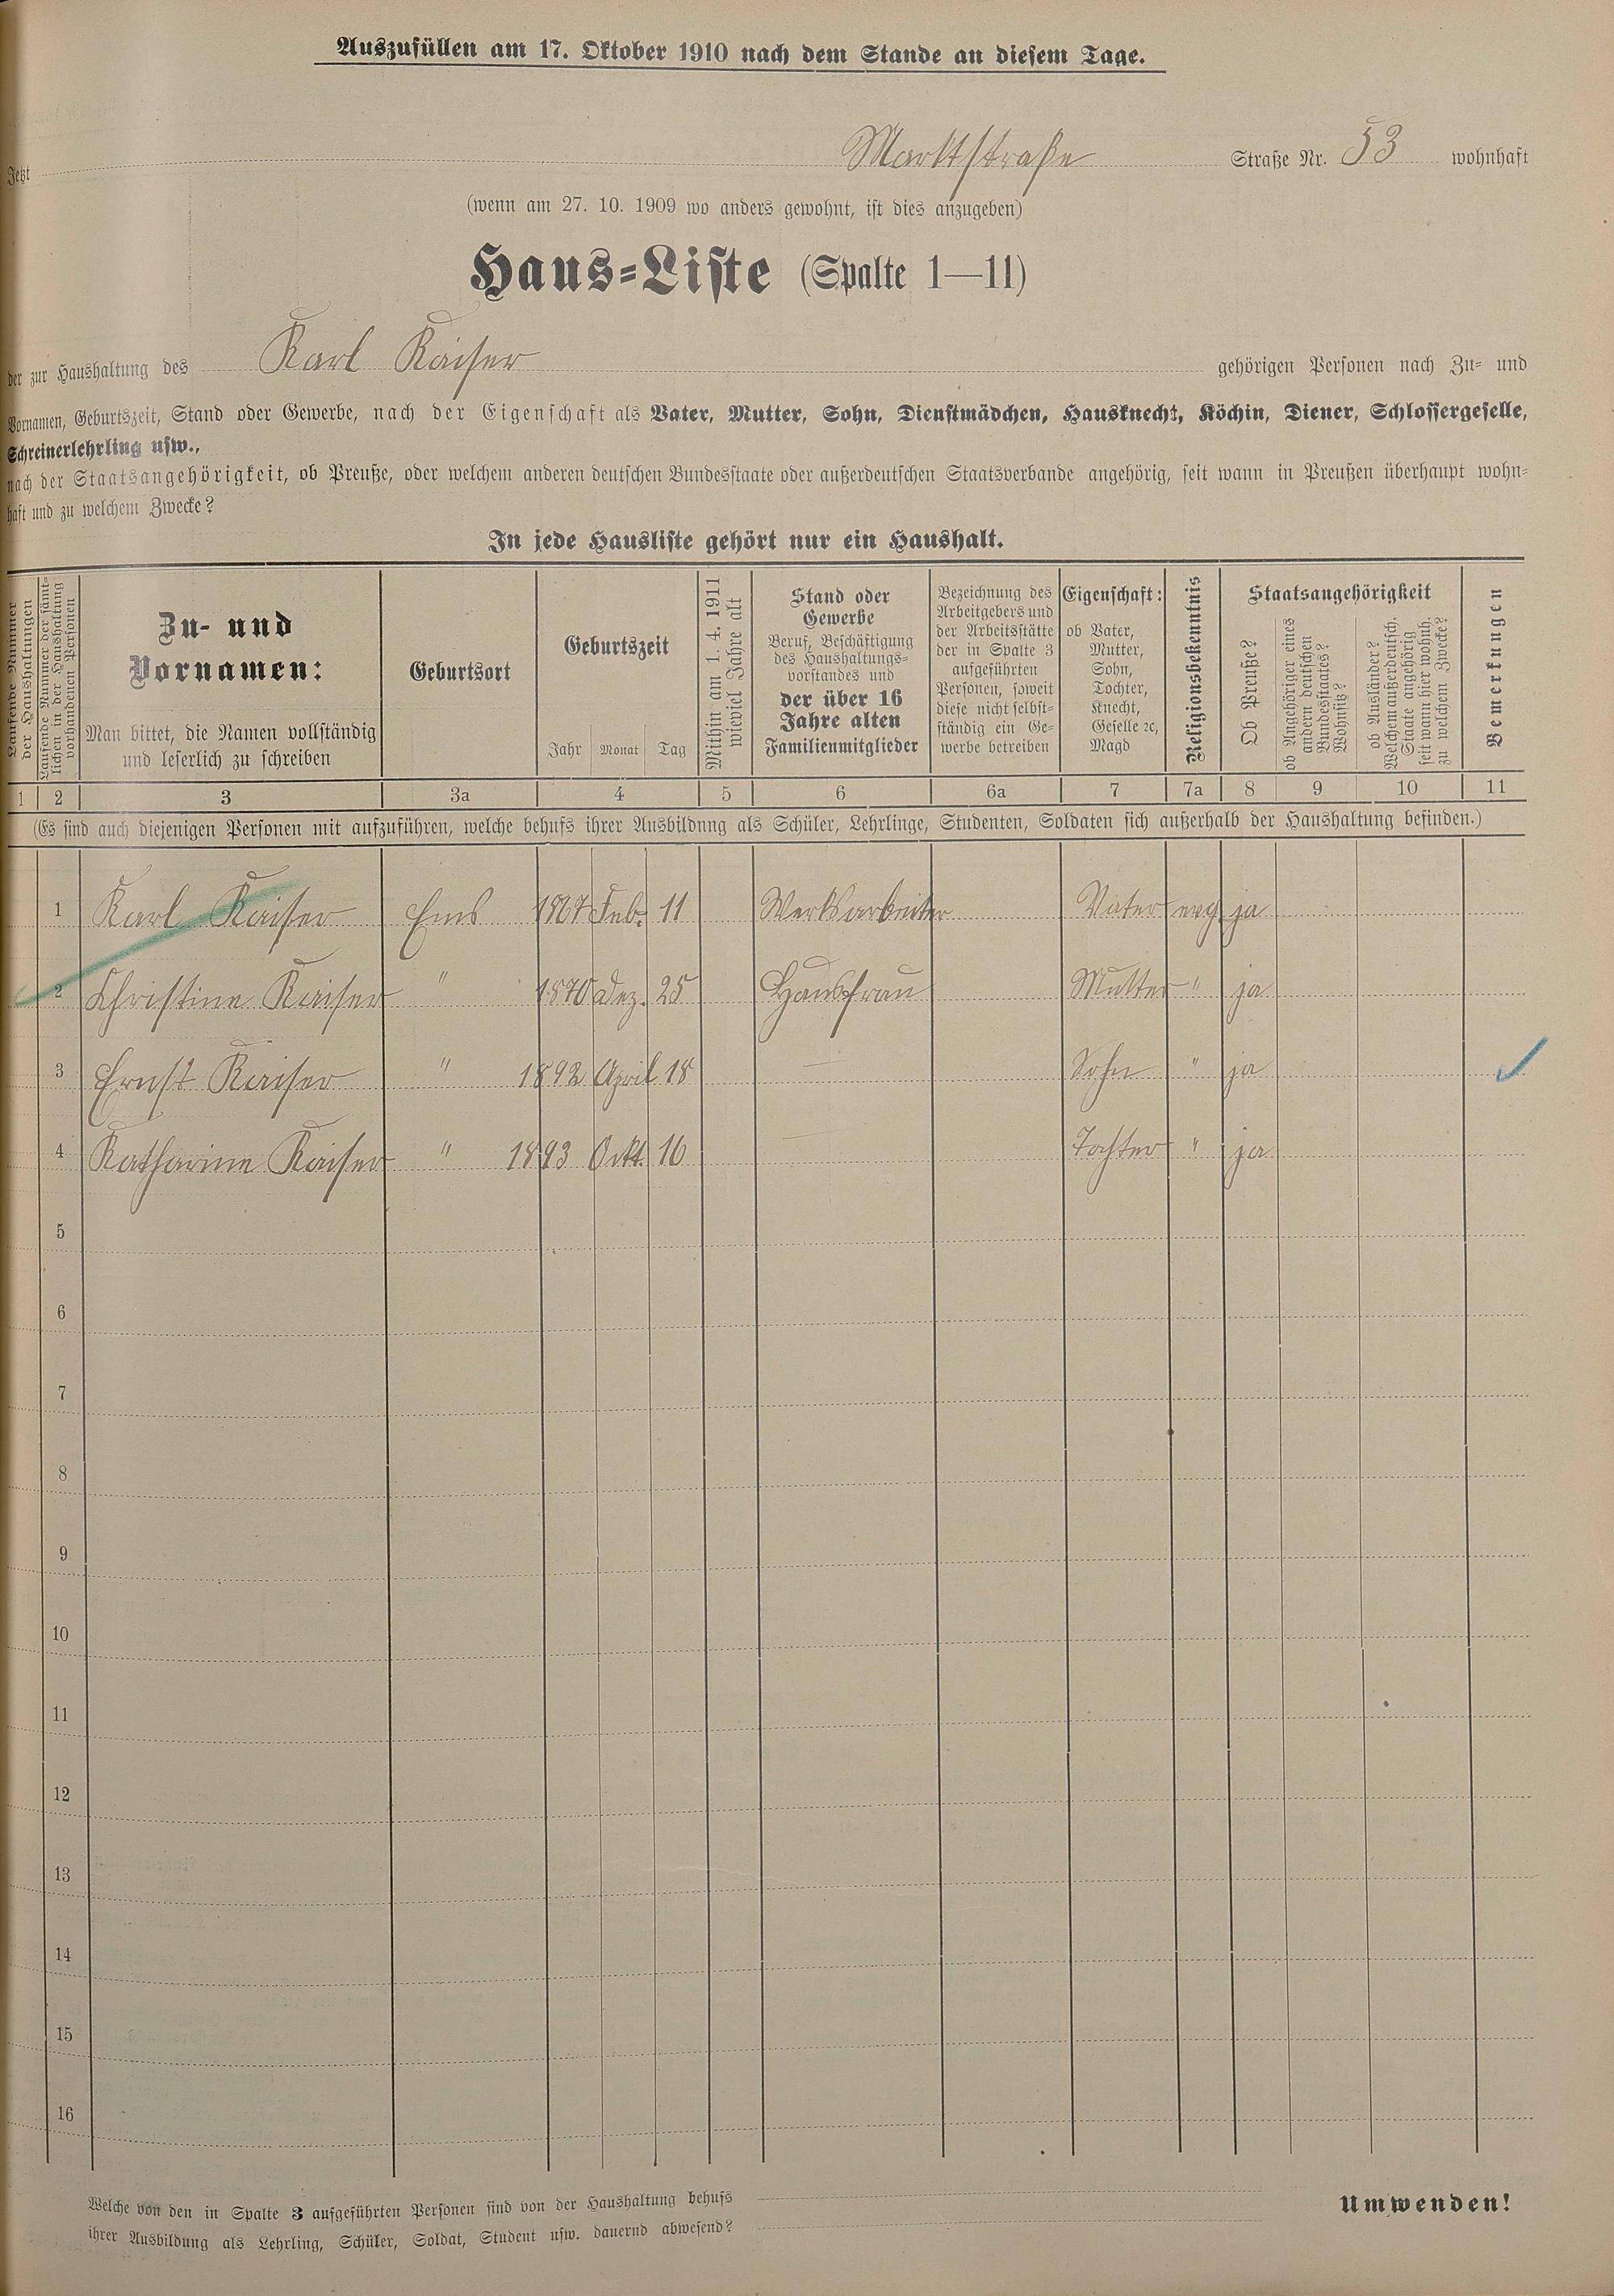 Auszufüllen am 17. Oktober 1910 nach dem Stande an diesem Tage.
Jetzt Marktstraße Straße Nr. 53 wohnhaft
(wenn am 27. 10. 1909 wo anders gewohnt, ist dies anzugeben)
Haus-Liste (Spalte 1—11)
der zur Haushaltung des Karl Kaiser gehörigen Personen nach Zu- und
Vornamen, Geburtszeit, Stand oder Gewerbe, nach der Eigenschaft als Vater, Mutter, Sohn, Dienstmädchen, Hausknecht, Köchin, Diener, Schlossergeselle,
Schreinerlehrling usw.,
nach der Staatsangehörigkeit, ob Preuße, oder welchem anderen deutschen Bundesstaate oder außerdeutschen Staatsverbande angehörig, seit wann in Preußen überhaupt wohn-
haft und zu welchem Zwecke?
In jede Hausliste gehört nur ein Haushalt.
Laufende Nummer
der Haushaltungen
Laufende Nummer der sämt-
lichen in der Haushaltung
vorhandenen Personen
Zu- und
Vornamen:
Man bittet, die Namen vollständig
und leserlich zu schreiben
Geburtsort
Geburtszeit
Jahr Monat Tag
Mithin am 1. 4. 1911
wieviel Jahre alt
Stand oder
Gewerbe
Beruf, Beschäftigung
des Haushaltungs-
vorstandes und
der über 16
Jahre alten
Familienmitglieder
Bezeichnung des
Arbeitgebers und
der Arbeitsstätte
der in Spalte 3
aufgeführten
Personen, soweit
diese nicht selbst-
ständig ein Ge-
werbe betreiben
Eigenschaft:
ob Vater,
Mutter,
Sohn,
Tochter,
Knecht,
Geselle ꝛc,
Magd
Religionsbekenntnis
Staatsangehörigkeit
Ob Preuße?
ob Angehöriger eines
andern deutschen
Bundesstaates?
Wohnsitz?
ob Ausländer?
Welchem außerdeutsch.
Staate angehörig
seit wann hier wohnh.
zu welchem Zwecke?
Bemerkungen
1 2 3 3a 4 5 6 6a 7 7a 8 9 10 11
(Es sind auch diejenigen Personen mit aufzuführen, welche behufs ihrer Ausbildung als Schüler, Lehrlinge, Studenten, Soldaten sich außerhalb der Haushaltung befinden.)
1 Karl Kaiser Ems 1867 Feb. 11 Werksarbeiter Vater evg. ja
2 Christine Kaiser " 1870 Dez. 25 Hausfrau Mutter " ja
3 Ernst Kaiser " 1892 April 18 — Sohn " ja
4 Katharine Kaiser " 1893 Okt. 16 — Tochter " ja
5
6
7
8
9
10
11
12
13
14
15
16
Welche von den in Spalte 3 aufgeführten Personen sind von der Haushaltung behufs
ihrer Ausbildung als Lehrling, Schüler, Soldat, Student usw. dauernd abwesend?
Umwenden!